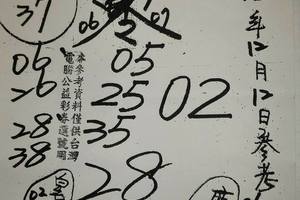 37
06 07
06
26
28
38
05
25
35
28
02
本參考資料僅供台灣
電腦公益彩券選號用
年12月12日參考
02